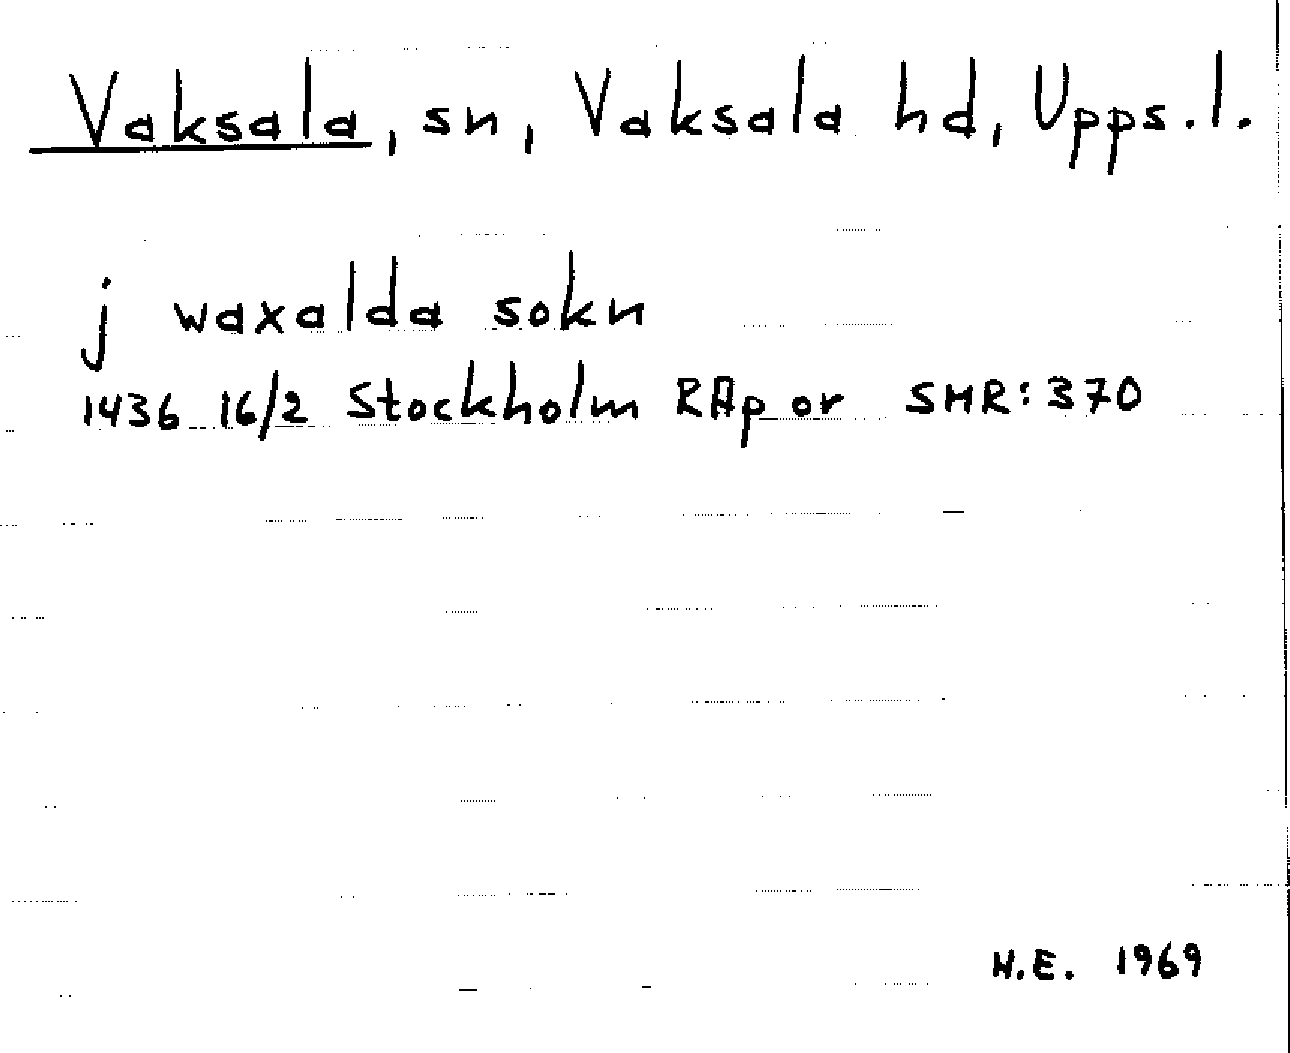 Vaksala, sn, Vaksala hd, Upps.l.
j waxalda sokn
1436 16/2 Stockholm RAp or SMR:370
N.E. 1969